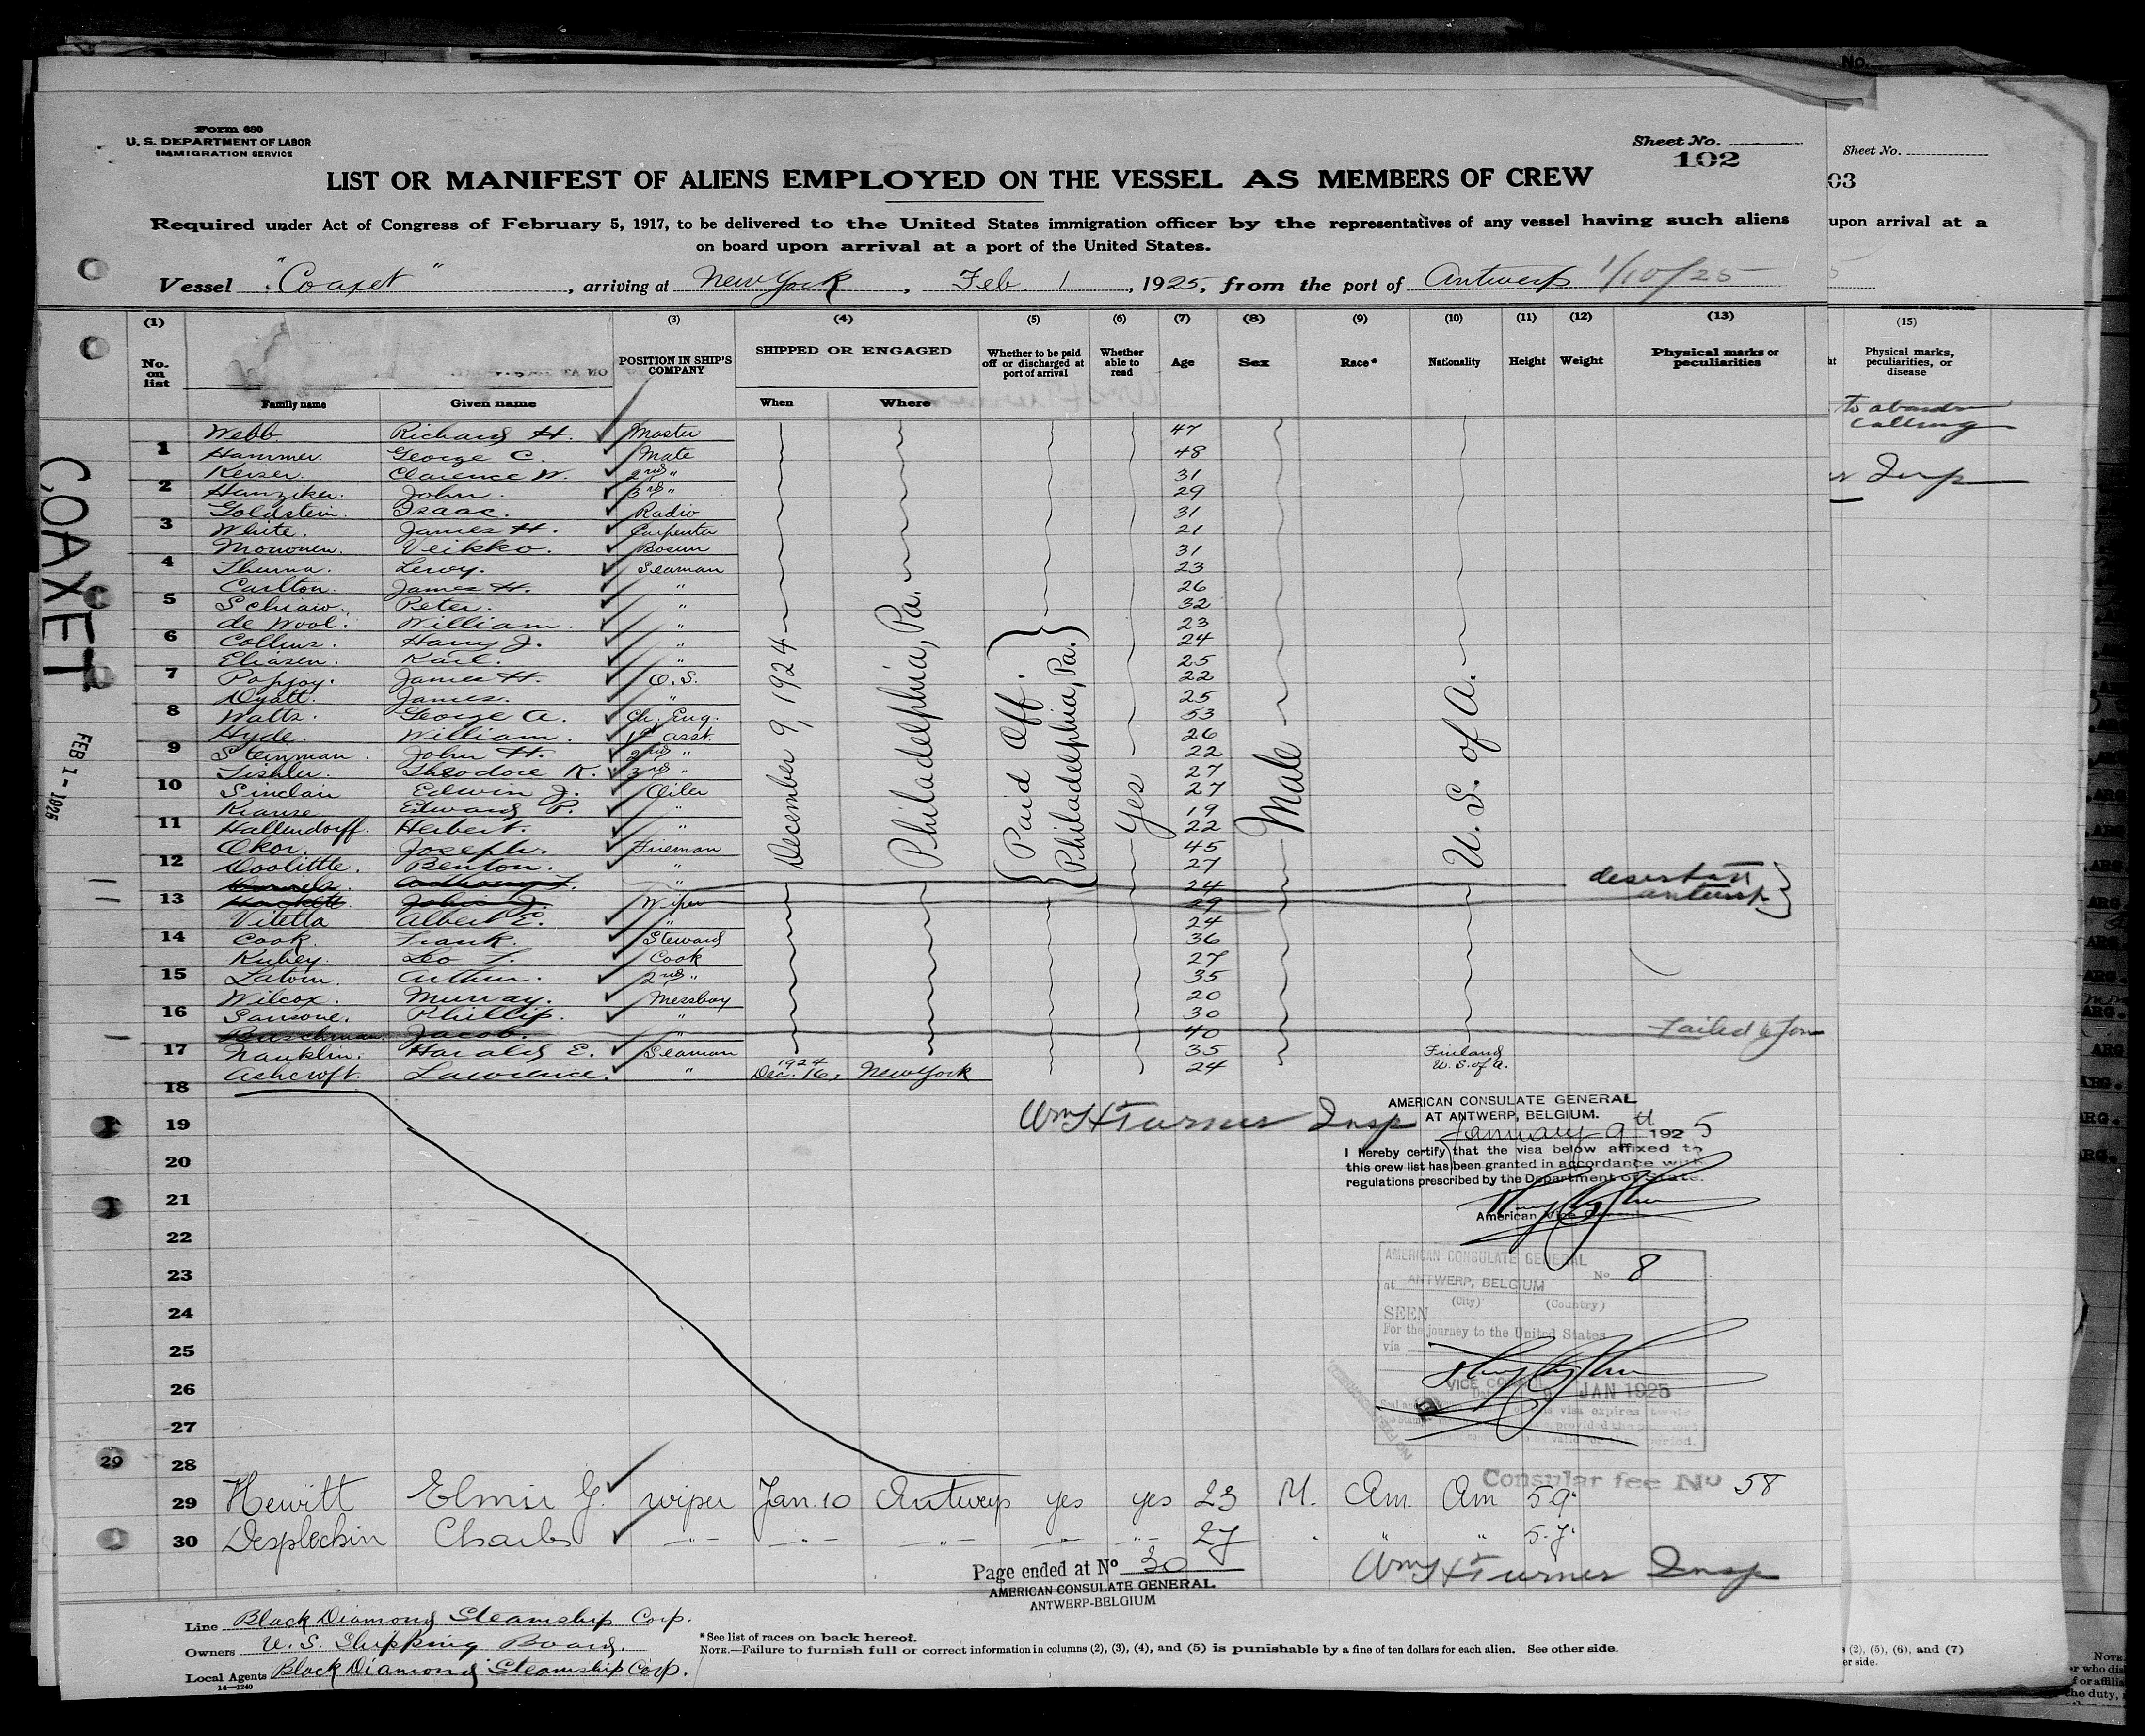 No.
Form 680
U. S. DEPARTMENT OF LABOR
IMMIGRATION SERVICE
Sheet No.
102
LIST OR MANIFEST OF ALIENS EMPLOYED ON THE VESSEL AS MEMBERS OF CREW
Required under Act of Congress of February 5, 1917, to be delivered to the United States immigration officer by the representatives of any vessel having such aliens
on board upon arrival at a port of the United States.
Vessel "Coaxet", arriving at New York, Feb. 1, 1925, from the port of Antwerp 1/10/25
(1) (3) (4) (5) (6) (7) (8) (9) (10) (11) (12) (13)
No. on list
Family name Given name
POSITION IN SHIP'S COMPANY
SHIPPED OR ENGAGED
When Where
Whether to be paid off or discharged at port of arrival
Whether able to read
Age Sex Race* Nationality Height Weight
Physical marks or peculiarities
Webb Richard H. Master 47
1 Hammer. George C. Mate 48
Keiser. Clarence W. 2nd " 31
2 Hunziker. John. 3rd " 29
Goldstein. Isaac. Radio 31
3 White. James H. Carpenter 21
Mononen. Veikko. Bosun 31
4 Thuma. Leroy. Seaman 23
Carlton. James H. " 26
5 Schiavo. Peter. " 32
de Wool. William. " 23
6 Collins. Harry J. " 24
Eliasen. Karl. " 25
7 Popjoy. James H. O.S. 22
Dyatt. James. " 25
8 Watts. George A. Ch. Eng. 53
Hyde. William. 1st asst. 26
9 Steinman. John H. 2nd " 22
Tishler. Theodore K. 3rd " 27
10 Sinclair Edwin J. Oiler 27
Krause Edward P. " 19
11 Hallendorff. Herbert. " 22
Okor. Joseph. Fireman 45
12 Doolittle. Benton. " 27
Anthony " 24
13 Hackett John J. Wiper 29
desert at
antwerp
Vitetta Albert E. " 24
14 Cook. Frank. Steward 36
Rubey. Leo T. Cook 27
15 Arthur. 2nd " 35
Wilcox. Murray. Messboy 20
16 Sansone. Phillip. " 30
Jacob. " 40 Failed to Join
17 Nanklin. Harald E. Seaman 35 Finland
Ashcroft. Lawrence. " 1924 Dec. 16, New York 24 U.S. of A.
December 9, 1924
Philadelphia, Pa.
Paid Off.
Philadelphia, Pa.
Yes
Male
U. S. of A.
18
19
20
21
22
23
24
25
26
27
28
Wm H Turner Insp
AMERICAN CONSULATE GENERAL
AT ANTWERP, BELGIUM.
January 9th 1925
I hereby certify that the visa below affixed to
this crew list has been granted in accordance with
regulations prescribed by the Department of State.
American Vice Consul
AMERICAN CONSULATE GENERAL
at ANTWERP, BELGIUM No 8
(City) (Country)
SEEN
For the journey to the United States
via
VICE CONSUL
Date 9 JAN 1925
Consular fee No 58
29 Hewitt Elmir G. wiper Jan. 10 Antwerp yes yes 23 M. Am. Am 5.9.
30 Desplechin Charles " " " " " 27 " " " 5.7.
Page ended at No 30
AMERICAN CONSULATE GENERAL
ANTWERP-BELGIUM
Wm H Turner Insp
Line Black Diamond Steamship Corp.
Owners U. S. Shipping Board.
Local Agents Black Diamond Steamship Corp.
14—1240
*See list of races on back hereof.
NOTE.—Failure to furnish full or correct information in columns (2), (3), (4), and (5) is punishable by a fine of ten dollars for each alien. See other side.
COAXET
FEB 1 - 1925
29
Sheet No.
03
upon arrival at a
(15)
Physical marks, peculiarities, or disease
calling
Insp
(2), (5), (6), and (7)
er side.
NOTE
r who
the duty,